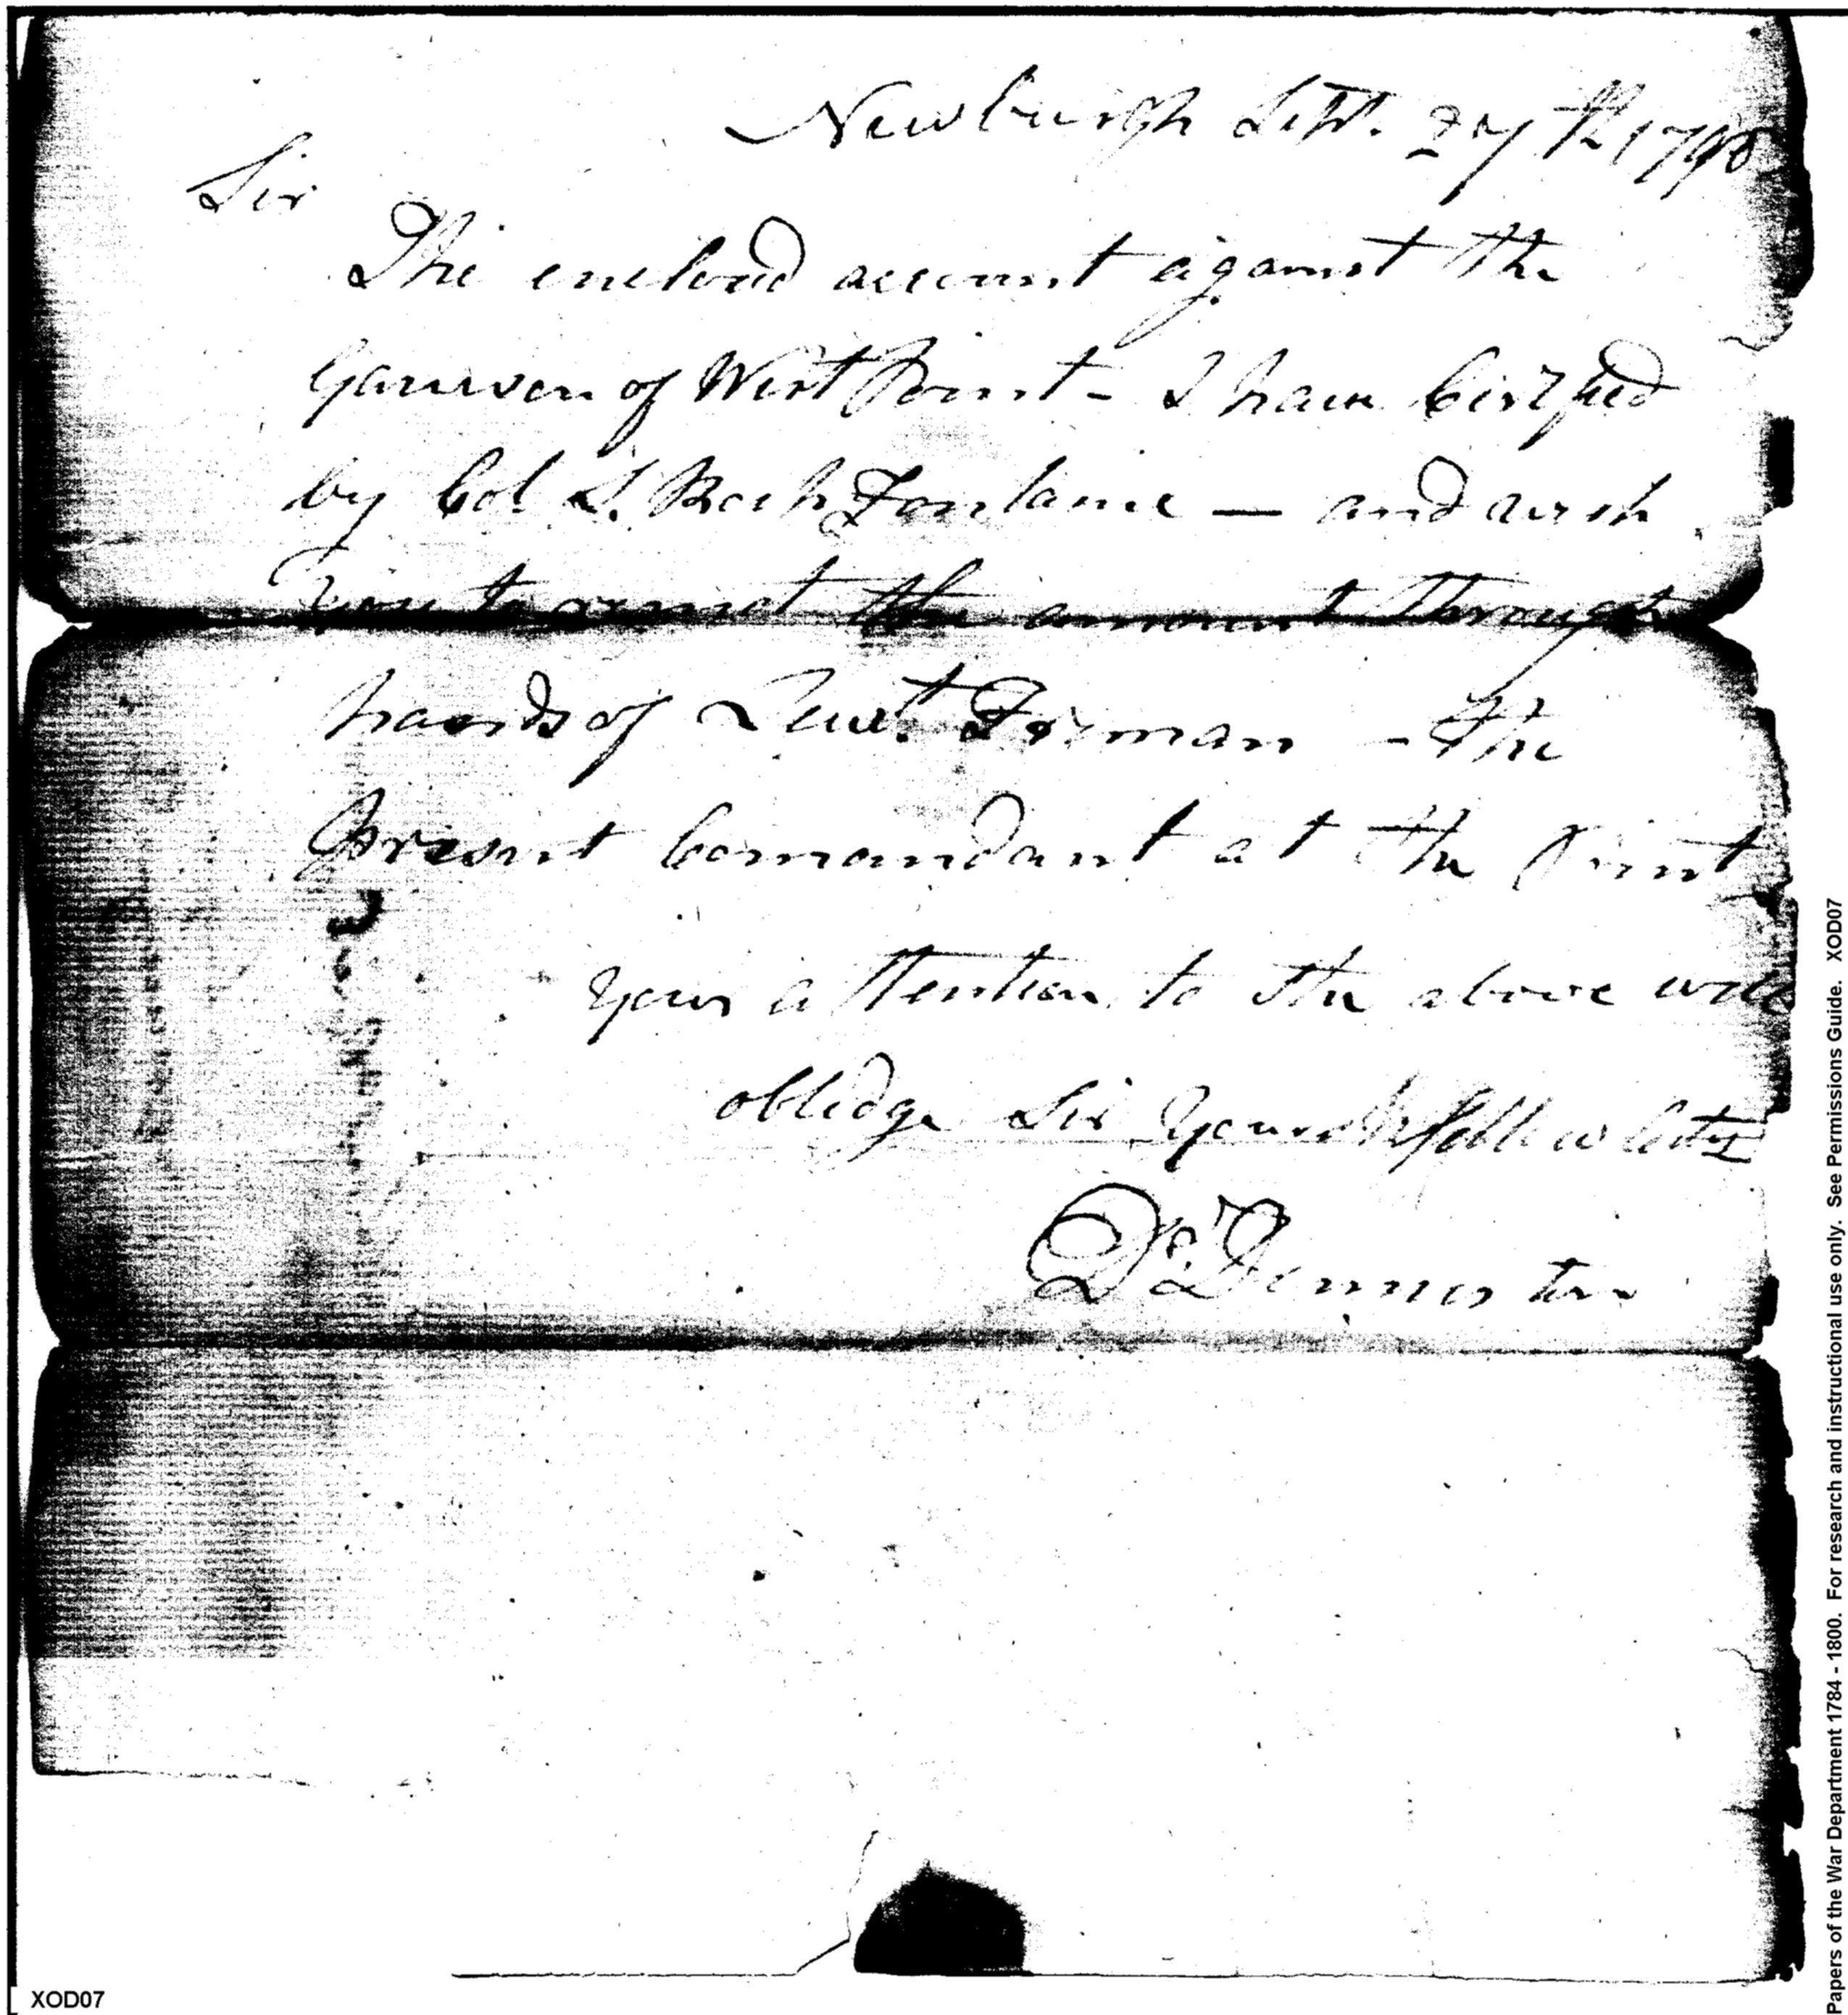 Newburgh Sept. 27th 1798
Sir
The enclosed account against the
Garrison of West Point - I have Certifyed
by Col L. Roch Fontaine — and wish
you to remit the amount through
hands of Lieut. Forman - the
Present Comandant at the Point
Your attention to the above will
obledge Sir Yours
D. Denniston
XOD07
Papers of the War Department 1784 - 1800. For research and instructional use only. See Permissions Guide. XOD07